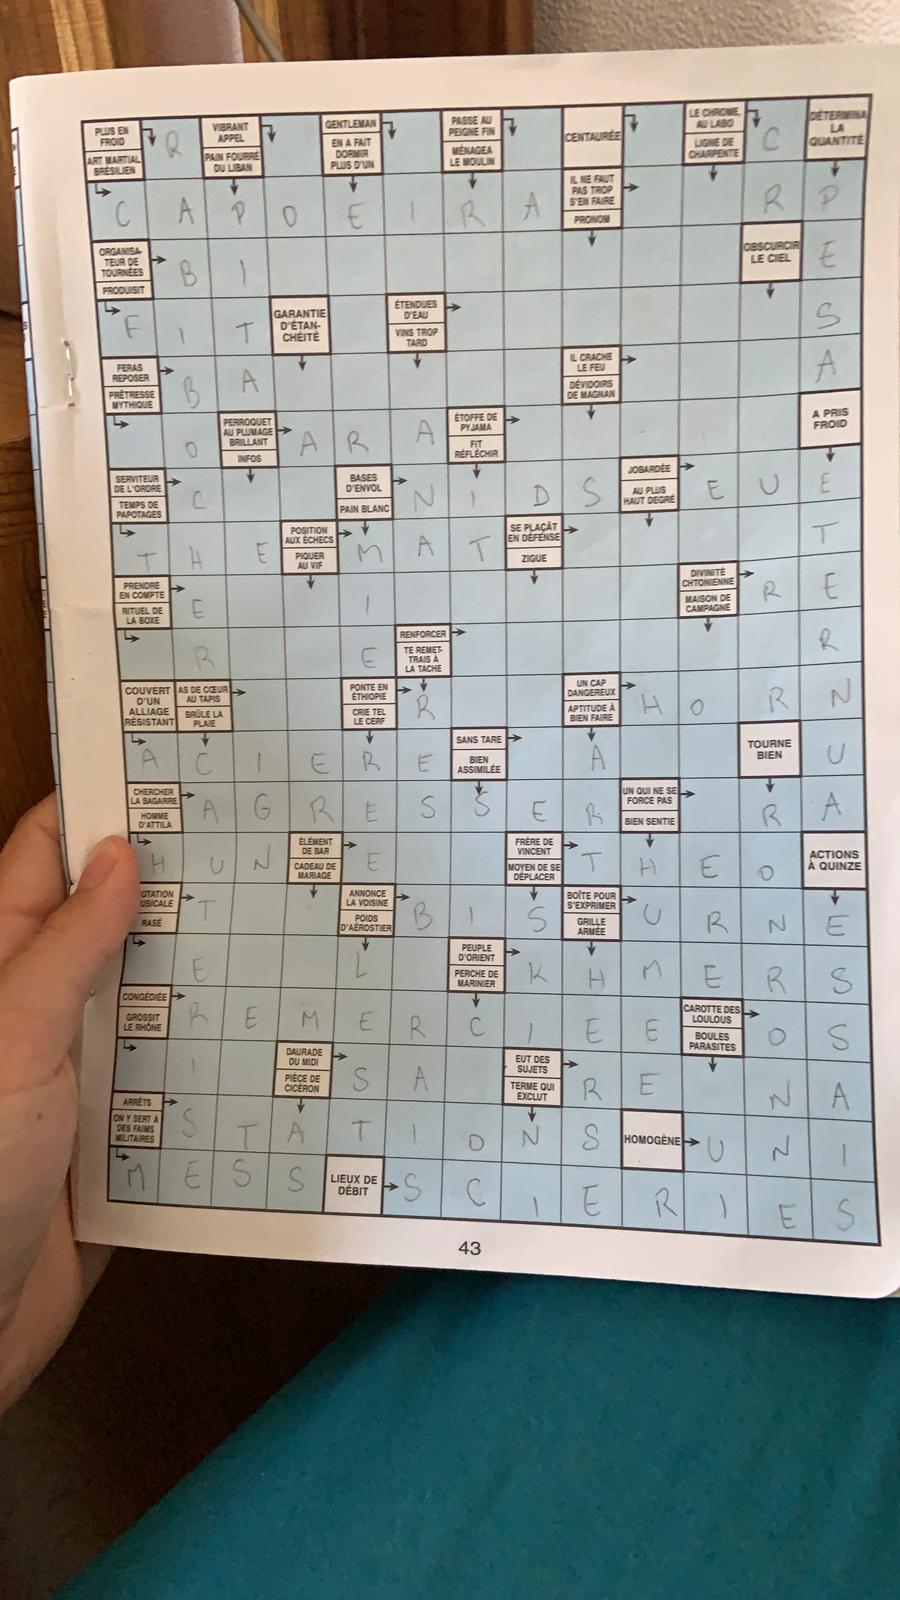 PLUS EN FROID
ART MARTIAL BRÉSILIEN
R
VIBRANT APPEL
PAIN FOURRÉ DU LIBAN
GENTLEMAN
EN A FAIT DORMIR PLUS D'UN
PASSE AU PEIGNE FIN
MÉNAGEA LE MOULIN
CENTAURÉE
LE CHROME, AU LABO
LIGNE DE CHARPENTE
C
DÉTERMINA LA QUANTITÉ
C A P O E I R A
IL NE FAUT PAS TROP S'EN FAIRE
PRONOM
R P
ORGANISATEUR DE TOURNÉES
PRODUISIT
B I
OBSCURCIR LE CIEL
E
F I T
GARANTIE D'ÉTANCHÉITÉ
ÉTENDUES D'EAU
VINS TROP TARD
S
FERAS REPOSER
PRÊTRESSE MYTHIQUE
B A
IL CRACHE LE FEU
DÉVIDOIRS DE MAGNAN
A
O
PERROQUET AU PLUMAGE BRILLANT
INFOS
A R A
ÉTOFFE DE PYJAMA
FIT RÉFLÉCHIR
A PRIS FROID
SERVITEUR DE L'ORDRE
TEMPS DE PAPOTAGES
C
BASES D'ENVOL
PAIN BLANC
N I D S
JOBARDÉE
AU PLUS HAUT DEGRÉ
E U E
T H E
POSITION AUX ÉCHECS
PIQUER AU VIF
M A T
SE PLAÇÂT EN DÉFENSE
ZIGUE
T
PRENDRE EN COMPTE
RITUEL DE LA BOXE
E I
DIVINITÉ CHTONIENNE
MAISON DE CAMPAGNE
R E
R E
RENFORCER
TE REMETTRAIS À LA TACHE
R
COUVERT D'UN ALLIAGE RÉSISTANT
AS DE CŒUR AU TAPIS
BRÛLE LA PLAIE
PONTE EN ÉTHIOPIE
CRIE TEL LE CERF
R
UN CAP DANGEREUX
APTITUDE À BIEN FAIRE
H O R N
A C I E R E E
SANS TARE
BIEN ASSIMILÉE
A
TOURNE BIEN
U
CHERCHER LA BAGARRE
HOMME D'ATTILA
A G R E S S E R
UN QUI NE SE FORCE PAS
BIEN SENTIE
R A
H U N
ÉLÉMENT DE BAR
CADEAU DE MARIAGE
E
FRÈRE DE VINCENT
MOYEN DE SE DÉPLACER
T H E O
ACTIONS À QUINZE
OTATION USICALE
RASÉ
T
ANNONCE LA VOISINE
POIDS D'AÉROSTIER
B I S
BOÎTE POUR S'EXPRIMER
GRILLE ARMÉE
U R N E
E L
PEUPLE D'ORIENT
PERCHE DE MARINIER
K H M E R S
CONGÉDIÉE
GROSSIT LE RHÔNE
R E M E R C I E E
CAROTTE DES LOULOUS
BOULES PARASITES
O S
I
DAURADE DU MIDI
PIÈCE DE CICÉRON
S A
EUT DES SUJETS
TERME QUI EXCLUT
R E N A
ARRÊTS
ON Y SERT À DES FAIMS MILITAIRES
S T A T I O N S
HOMOGÈNE
U N I
M E S S
LIEUX DE DÉBIT
S C I E R I E S
43